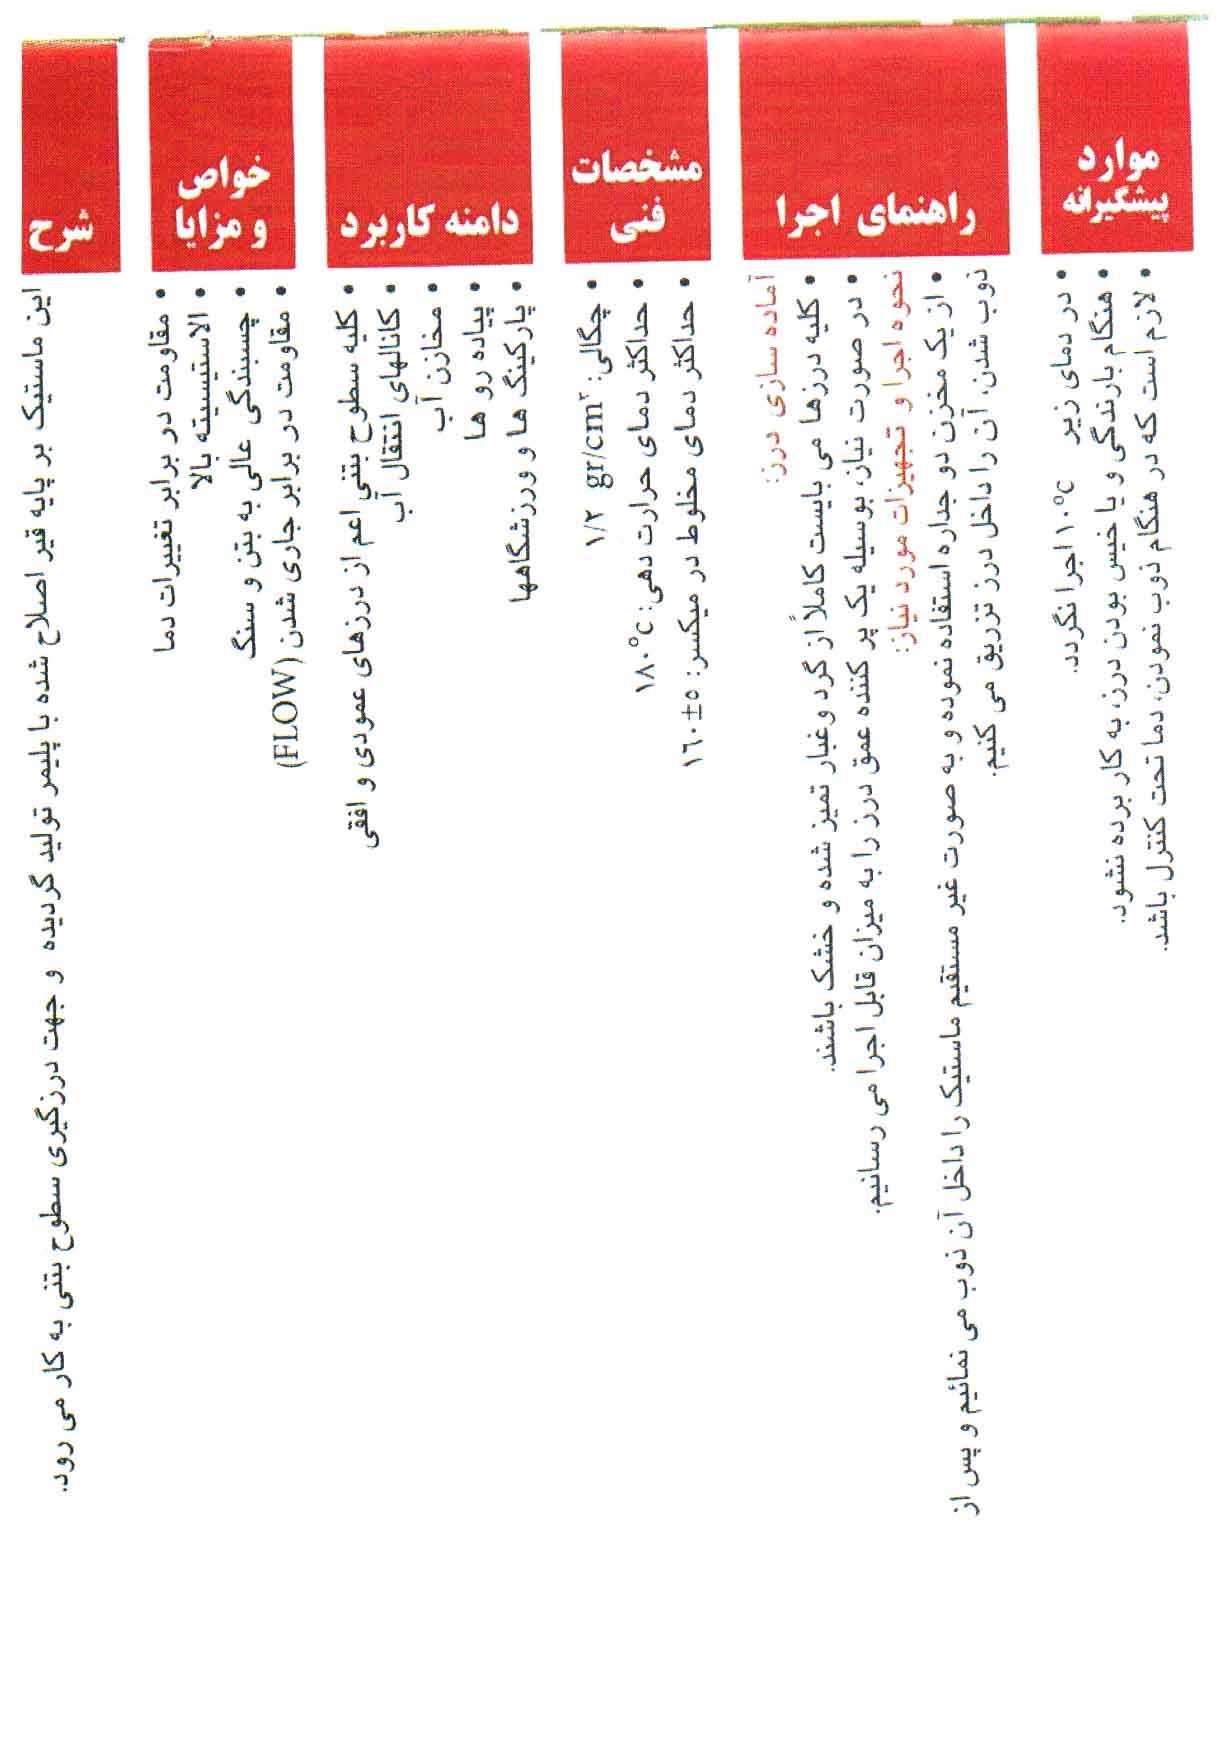 شرح
این ماستیک بر پایه قیر اصلاح شده با پلیمر تولید گردیده و جهت درزگیری سطوح بتنی به کار می رود.
خواص
و مزایا
• مقاومت در برابر تغییرات دما
• الاستیسیته بالا
• چسبندگی عالی به بتن و سنگ
• مقاومت در برابر جاری شدن (FLOW)
دامنه کاربرد
• کلیه سطوح بتنی اعم از درزهای عمودی و افقی
• کانالهای انتقال آب
• مخازن آب
• پیاده رو ها
• پارکینگ ها و ورزشگاهها
مشخصات
فنی
• چگالی: ۱/۲ gr/cm۳
• حداکثر دمای حرارت دهی: ۱۸۰°c
• حداکثر دمای مخلوط در میکسر: ۱۶۰±۵
راهنمای اجرا
آماده سازی درز:
• کلیه درزها می بایست کاملاً از گرد و غبار تمیز شده و خشک باشند.
• در صورت نیاز، بوسیله یک پر کننده عمق درز را به میزان قابل اجرا می رسانیم.
نحوه اجرا و تجهیزات مورد نیاز:
• از یک مخزن دو جداره استفاده نموده و به صورت غیر مستقیم ماستیک را داخل آن ذوب می نمائیم و پس از
ذوب شدن، آن را داخل درز تزریق می کنیم.
موارد
پیشگیرانه
• در دمای زیر ۱۰°c اجرا نگردد.
• هنگام بارندگی و یا خیس بودن درز، به کار برده نشود.
• لازم است که در هنگام ذوب نمودن، دما تحت کنترل باشد.